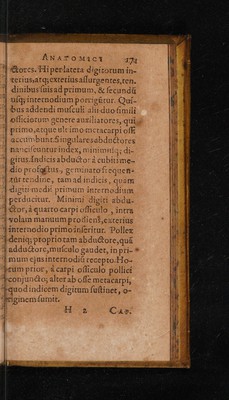 ANATOMICI 171
ctores. Hi per latera digitorum in-
terius, atq; exterius assurgentes, ten-
dinibus suis ad primum, & secundũ
usq; internodium porrigũtur. Qui-
bus addendi musculi alii duo simili
officiorum genere auxiliatores, qui
primo, atque ultimo metacarpi ossi
accumbunt. Singulares abductores
nanciscuntur index, minimusq; di-
gitus. Indicis abductor á cubiti me-
dio profectus, geminato frequen-
tur tendine, tam ad indicis, quam
digiti medii primum internodium
perducitur. Minimi digiti abdu-
ctor, á quarto carpi ossiculo, intra
volam manuum prosiens, exterius
internodio primo inseritur. Pollex
deniq; proprio tam abductore, quã
adductore, musculo gaudet, in pri-
mum ejus internodiũ recepto. Ho-
rum prior, á carpi ossiculo pollici
conjuncto; alter ab osse metacarpi,
quod indicem digitum sustinet, o-
riginem sumit.
H 2 CAP.